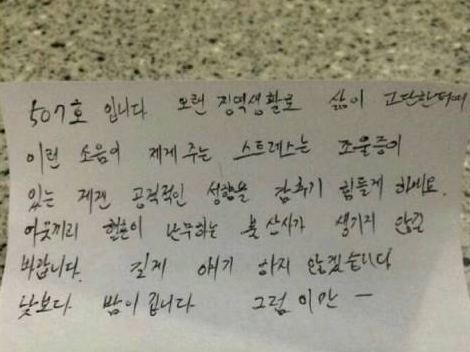 507호 입니다 오랜 징역생활로 삶이 고단한터에
이런 소음이 제게 주는 스트레스는 조울증이
있는 제겐 공격적인 성향을 감추기 힘들게 하네요.
이웃끼리 혈흔이 난무하는 불상사가 생기지 않길
바랍니다. 길게 얘기 하지 않겠습니다
낮보다 밤이 깁니다 그럼 이만 ―